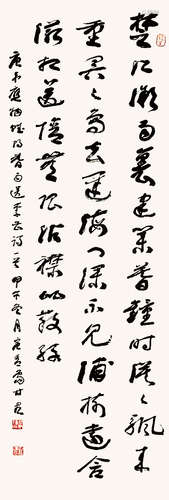 楚江微雨裏建業暮鐘時漠々颿来
重冥々鳥去遲海門深不見浦樹遠含
滋相送情無限沾襟比散絲
唐韋應物賦得暮雨送李胄詩一首 甲午冬月